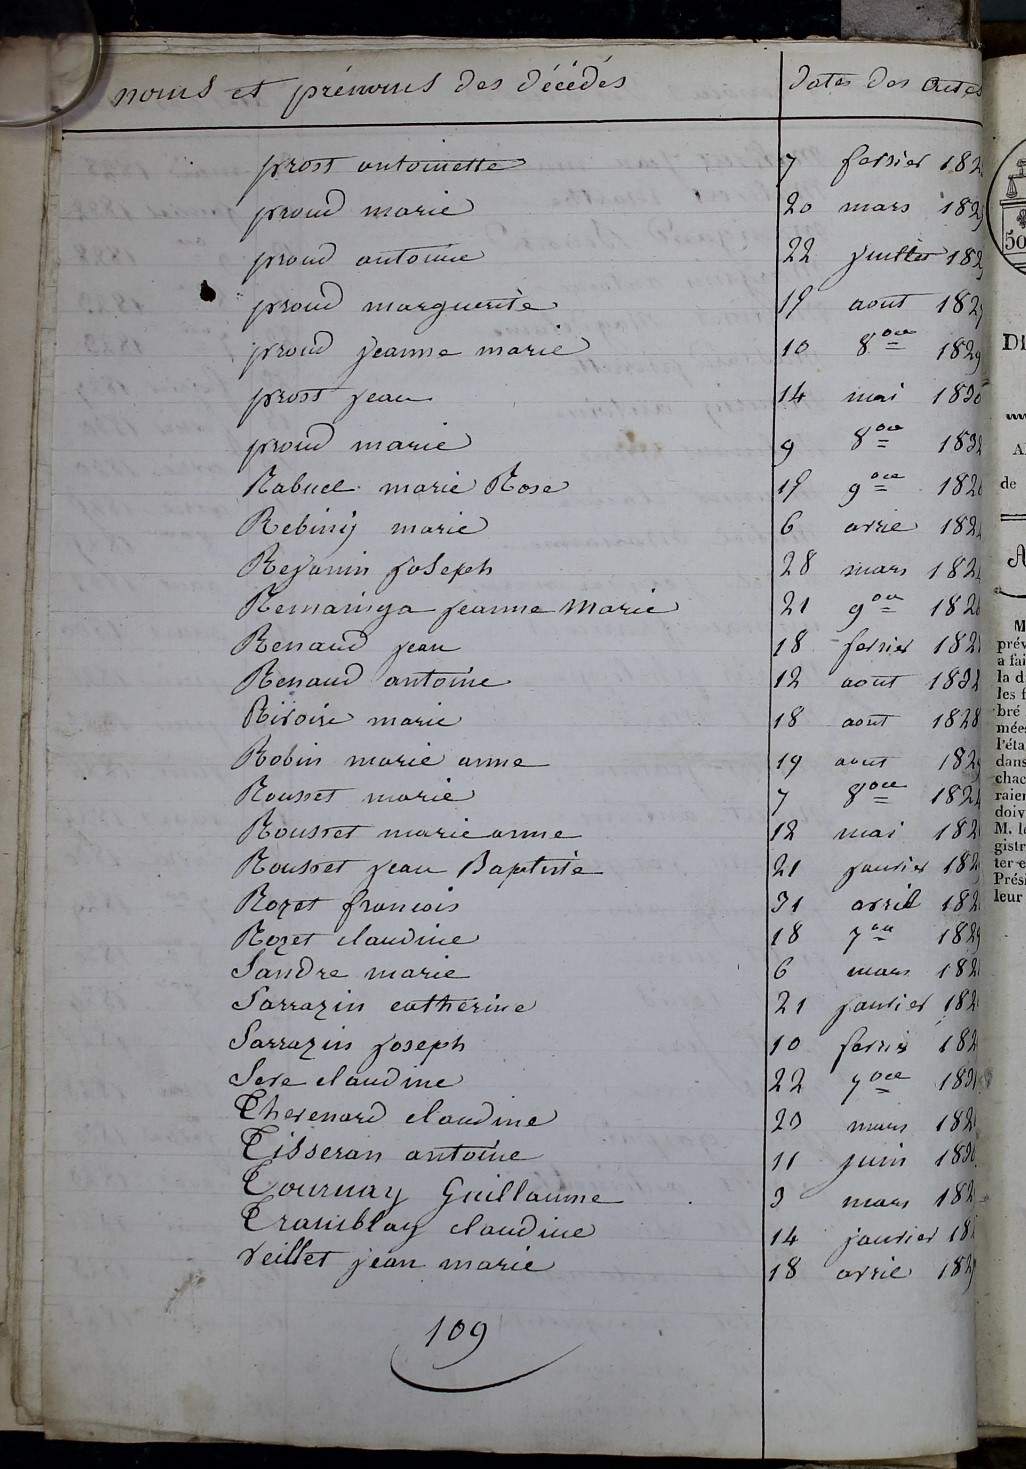 noms et prénoms des décédés dates des actes
prost antoinette 7 fevrier 182
proud marie 20 mars 1829
proud antoine 22 juillet 1829
proud marguerite 19 aout 1829
proud jeanne marie 10 8bre 1829
prost jean 14 mai 1830
proud marie 9 8bre 1832
Rabuel marie Rose 19 9bre 182
Rebiny marie 6 avril 182
Rejanin joseph 28 mars 182
Remaniga jeanne Marie 21 9bre 182
Renaud jean 18 fevrier 182
Renaud antoine 12 aout 1832
Rivoire marie 18 aout 1828
Robin marie anne 19 aout 1829
Rousset marie 7 8bre 182
Rousset marie anne 12 mai 182
Rousset jean Baptiste 21 janvier 182
Rozet francois 31 avril 182
Rozet claudine 18 7bre 1829
Sandre marie 6 mars 182
Sarrazin catherine 21 janvier 182
Sarrazin joseph 10 fevrier 182
Seve claudine 22 7bre 1831
Thevenard claudine 20 mars 182
Tisseran antoine 11 juin 1830
Tournay Guillaume 3 mars 182
Tramblay claudine 14 janvier 18
veillet jean marie 18 avril 1829
109
50
DI
de
M
prév
a fai
la d
les f
bré
mées
l'éta
dans
chac
raien
doiv
M. l
gistr
ter e
Prési
leur